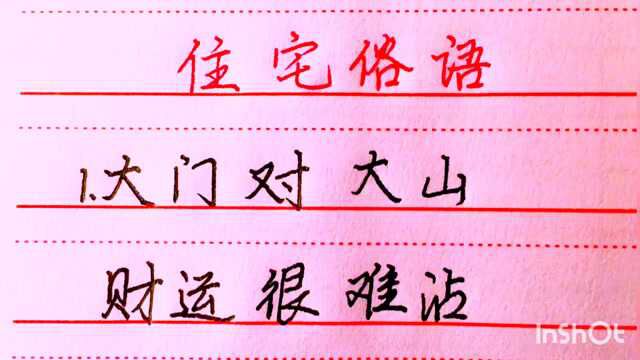 住宅俗语
1.大门对大山
财运很难沾
InShOt